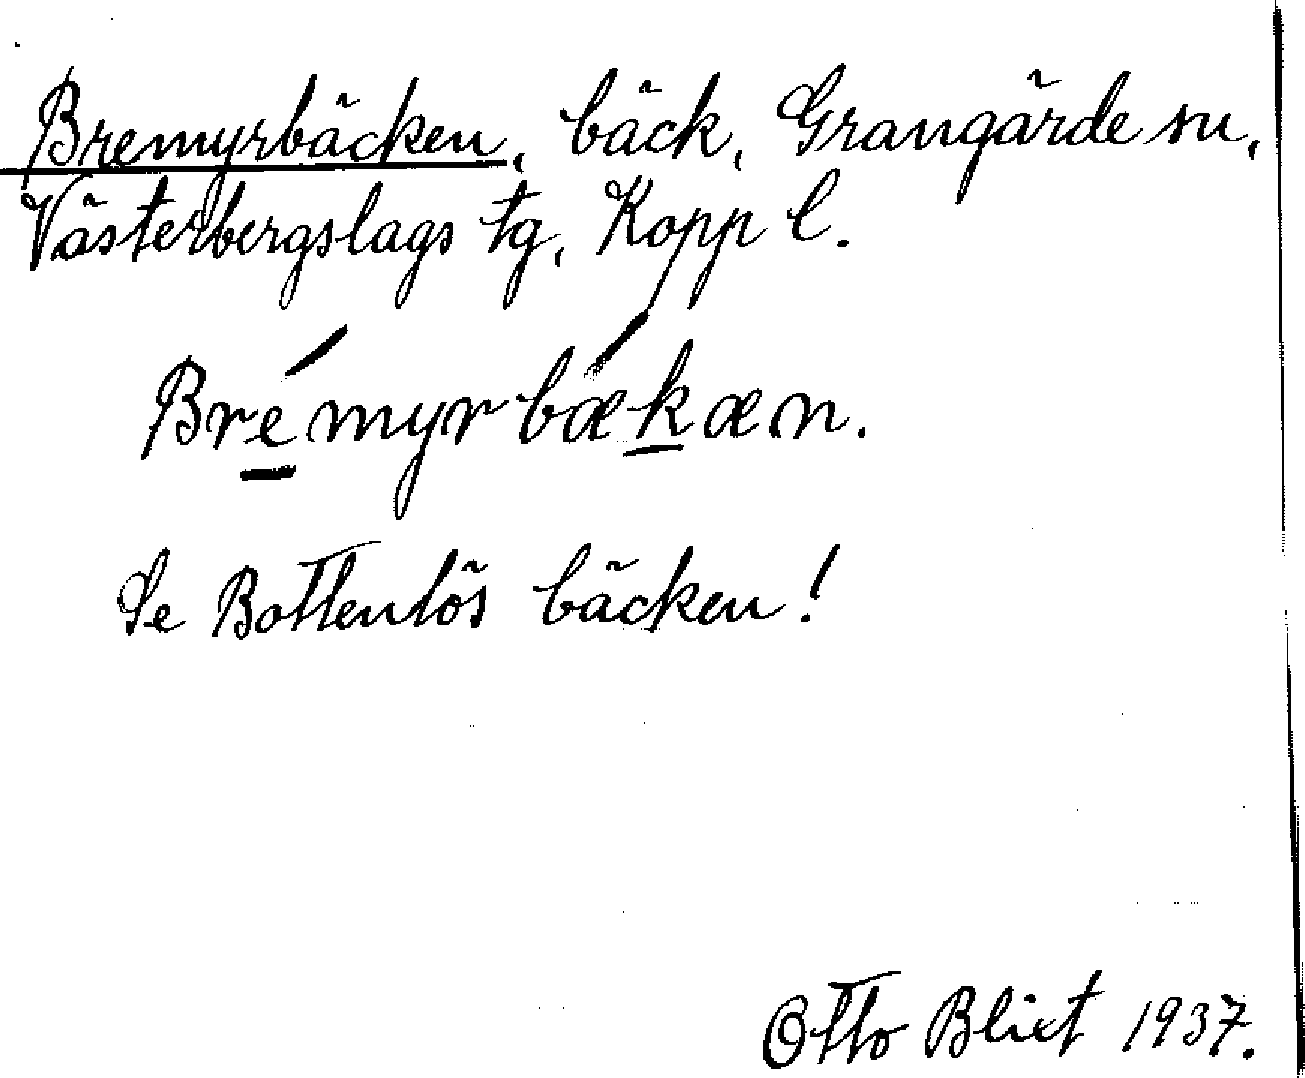 Bremyrbäcken, bäck, Grangärde sn,
Västerbergslags tg, Kopp l.
Brémyrbækæn.
Se Bottenlös bäcken!
Otto Blixt 1937.